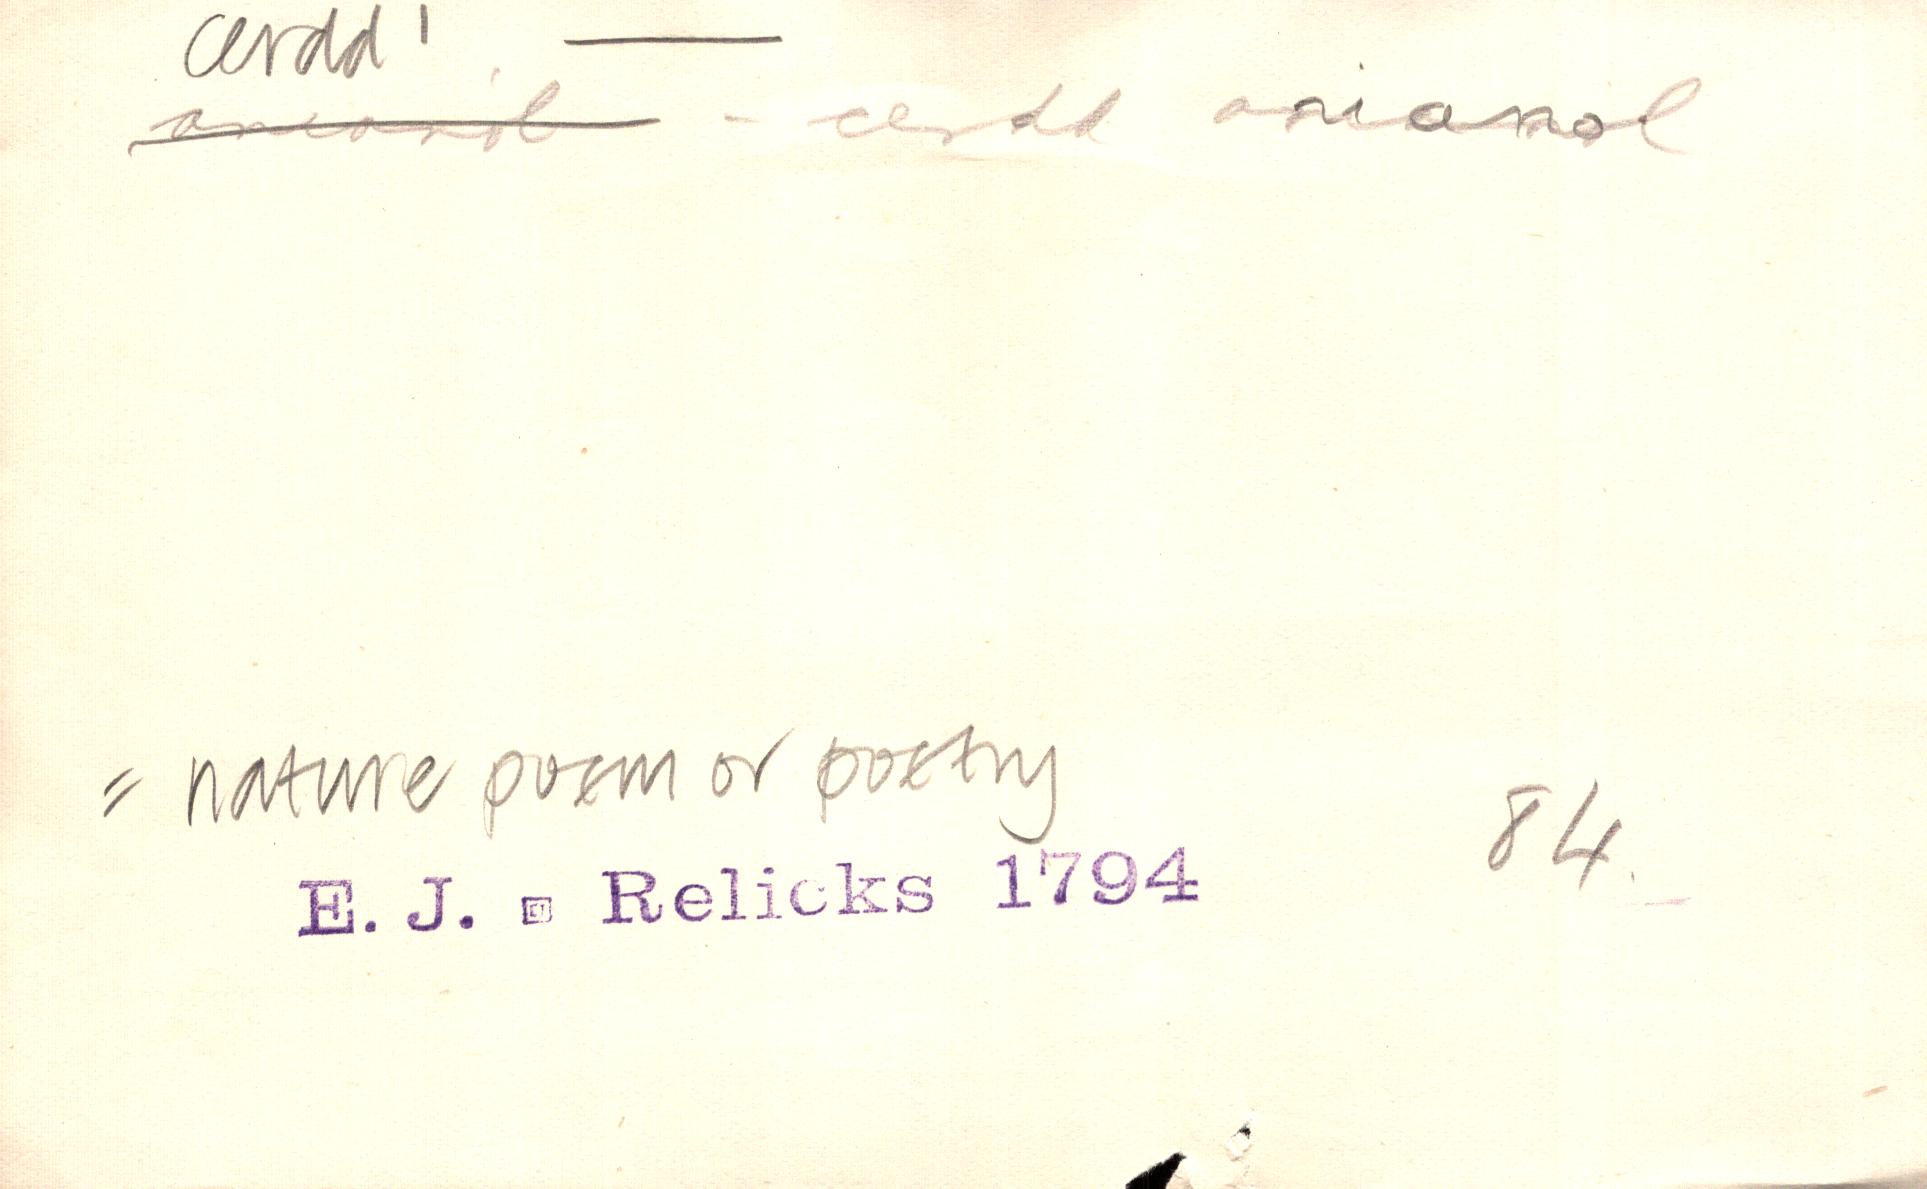 cerdd¹ —
anianol - cerdd anianol
= nature poem or poetry
84.
E. J. Relicks 1794